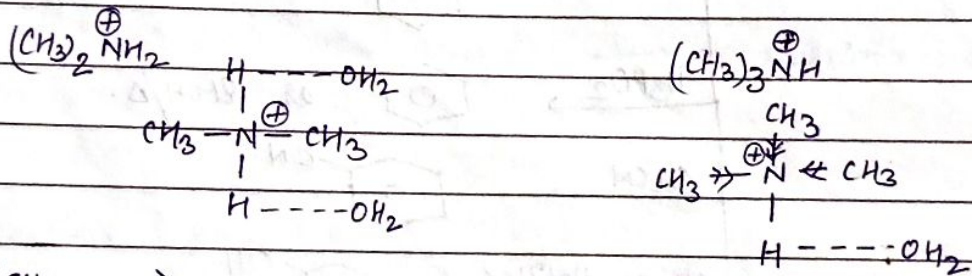 (CH3)2 ⊕NH2
H----OH2
CH3-N⊕-CH3
H----OH2
(CH3)3 ⊕NH
CH3
CH3 ⊕N CH3
H----:OH2